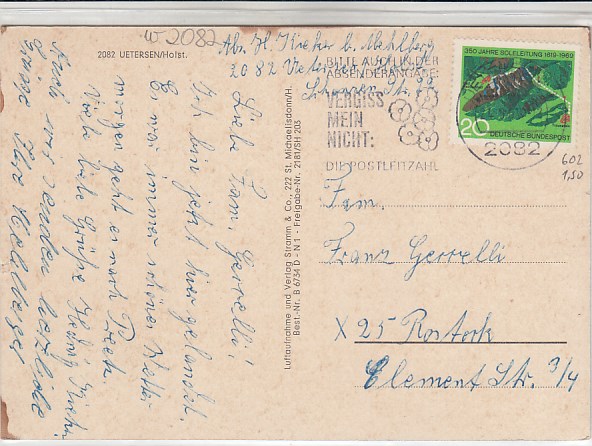 w 2082
2082 UETERSEN/Holst.
Abs. H. Kieker b. Mehlberg
2082 Uetersen
BITTE AUCH IN DER
ABSENDERANGABE:
VERGISS
MEIN
NICHT:
DIE POSTLEITZAHL
350 JAHRE SOLELEITUNG 1619-1969
20
DEUTSCHE BUNDESPOST
2082
602
1,50
Liebe Fam. Gerrelli!
Ich bin jetzt hier gelandet.
Es war immer schönes Wetter
morgen geht es nach
Viele liebe Grüße
Auch von senden herzliche
Grüsse
Luftaufnahme und Verlag Stramm & Co., 222 St. Michaelisdonn/H.
Best.-Nr. B 6734 D - N 1 - Freigabe-Nr. 2181/SH 203
Fam.
Franz Gerrelli
X 25 Rostock
Clement Str. 3/4